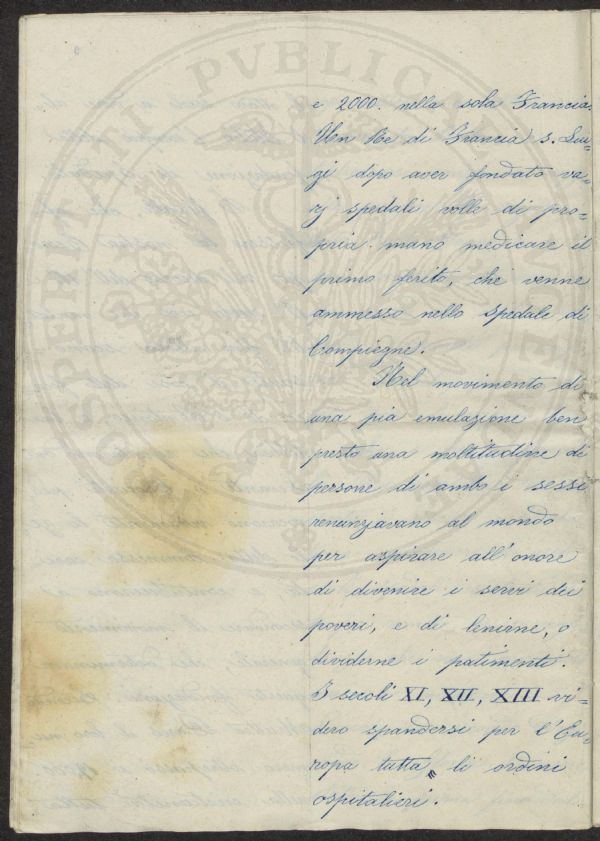 e 2000. nella sola Francia.
Un Re di Francia S. Lui=
gi dopo aver fondato va=
rj spedali volle di pro=
pria mano medicare il
primo ferito, che venne
ammesso nello spedale di
Compiegne.
Nel movimento di
una pia emulazione ben
presto una moltitudine di
persone di ambo i sessi
renunziavano al mondo
per aspirare all'onore
di divenire i servi dei
poveri, e di lenirne, o
dividerne i patimenti.
I secoli XI, XII, XIII vi=
dero spandersi per l'Eu=
ropa tutta li ordini
ospitalieri.